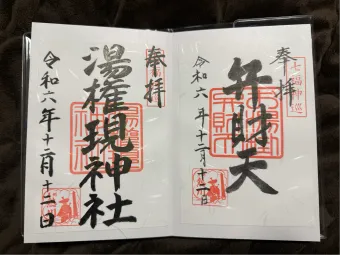 奉拝
弁財天
令和六年十二月十二日
奉拝
湯権現神社
令和六年十二月十二日